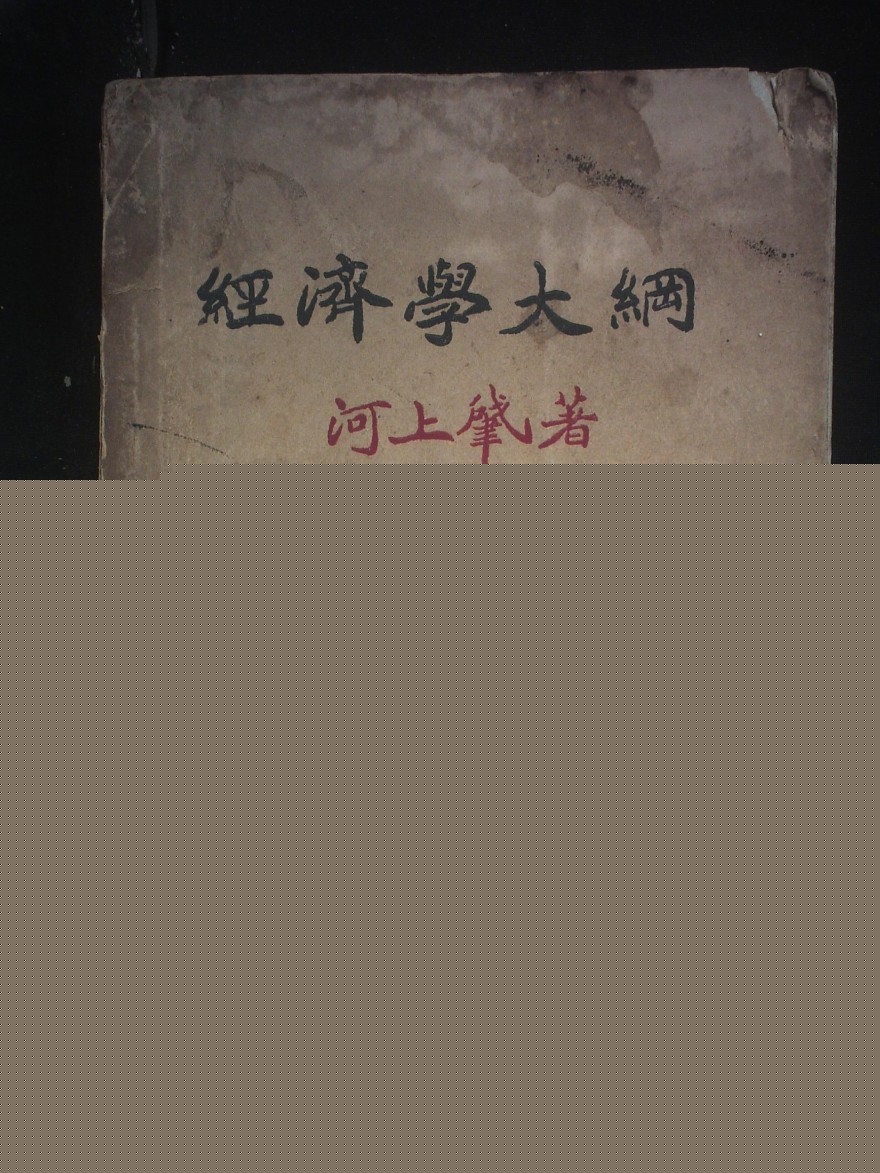 經濟學大綱
河上肇著